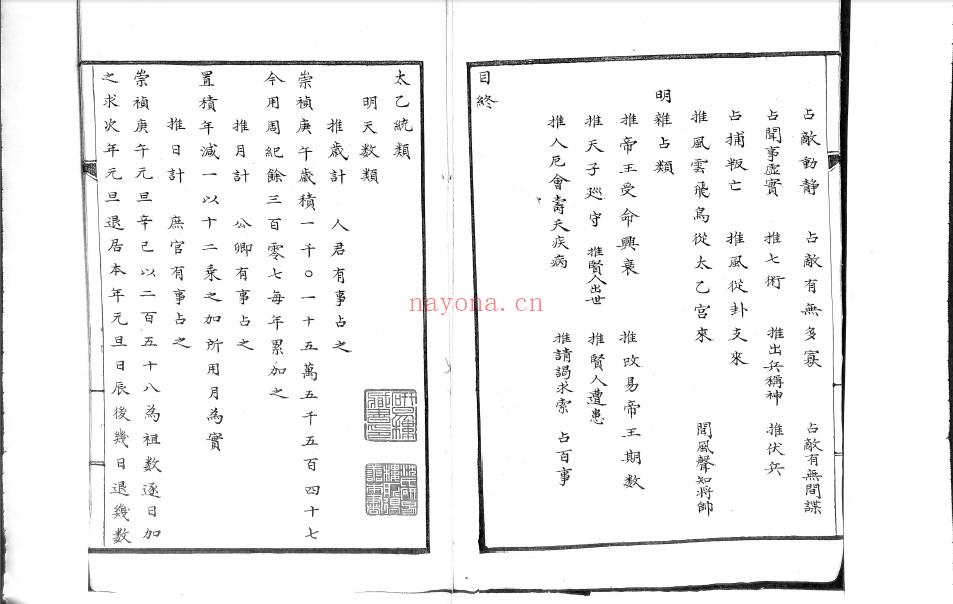 占敵動靜 占敵有無多寡 占敵有無間諜
占聞事虛實 推七術 推出兵稱神 推伏兵
占捕叛亡 推風從卦支來
推風雲飛鳥從太乙宮來 聞風聲知將帥
明雜占類
推帝王受命興衰 推改易帝王期數
推天子巡守 推賢人出世 推賢人遭患
推人厄會壽夭疾病 推請謁求索 占百事
目終
太乙統類
明天數類
推歲計 人君有事占之
崇禎庚午歲積一千〇一十五萬五千五百四十七
今用周紀餘三百零七每年累加之
推月計 公卿有事占之
置積年減一以十二乘之加所用月為實
推日計 庶官有事占之
崇禎庚午元旦辛巳以二百五十八為祖數逐日加
之求次年元旦退居本年元旦日辰後幾日退幾數
nayona.cn